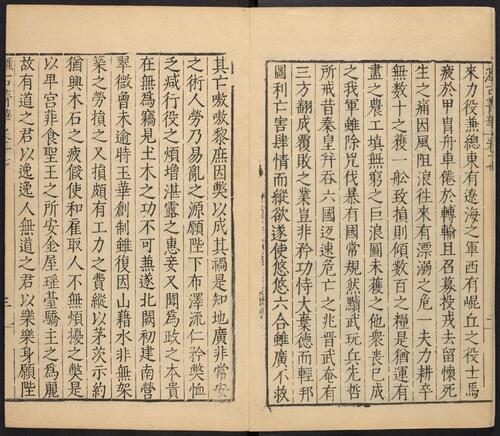 來力役兼總東有遼海之軍西有崐丘之役士馬
疲於甲胄舟車倦於轉輸且召募投戎去留懷死
生之痛因風阻浪往來有漂溺之危一夫力耕卒
無數十之穫一舩致損則傾數百之糧是猶運有
盡之農工填無窮之巨浪圖未獲之他衆喪巳成
之我軍雖除兇伐暴有國常規然黷武玩兵先哲
所戒昔秦皇幷吞六國迈速危亡之兆晉武奄有
三方翻成覆敗之業豈非矜功恃大棄德而輕邦
圖利亡害肆情而縱欲遂使悠悠六合雖廣不救
其亡嗷嗷黎庶因弊以成其禍是知地廣非常安
之術人勞乃易亂之源願陛下布澤流仁矜獘恤
乏减行役之煩增湛露之惠妾又聞爲政之本貴
在無爲竊見土木之功不可兼遂北闕初建南營
翠微曾未逾時玉華創制雖復因山藉水非無架
築之勞損之又損頗有工力之費縱以茅茨示約
猶興木石之疲假使和雇取人不無煩擾之獘是
以甲宫非食聖王之所安金屋瑶臺驕主之爲麗
故有道之君以逸逸人無道之君以樂樂身願陛
三